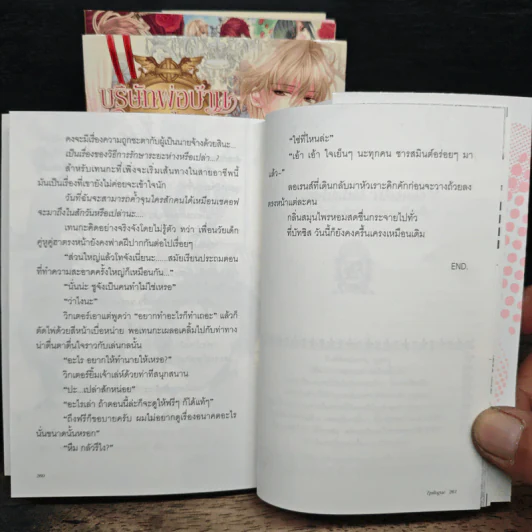 บริษัทพ่อบ้าน
คงจะมีเรื่องความถูกชะตากับผู้เป็นนายจ้างด้วยสินะ...
เป็นเรื่องของวิธีการรักษาระยะห่างหรือเปล่า...!
สำหรับเทนกะที่เพิ่งจะเริ่มเส้นทางในสายอาชีพนี้
มันเป็นเรื่องที่เขายังไม่ค่อยจะเข้าใจนัก
วันที่ฉันจะสามารถค้ำจุนใครสักคนได้เหมือนเชคอฟ
จะมาถึงในสักวันหรือเปล่านะ...
เทนกะคิดอย่างจริงจังโดยไม่รู้ตัว ทว่า เพื่อนวัยเด็ก
คู่หูคู่ฮาตรงหน้ายังคงฟาดฝีปากกันต่อไปเรื่อยๆ
"ส่วนใหญ่แล้วโทจังเนี่ยนะ.....สมัยเรียนประถมตอน
ที่ทำความสะอาดครั้งใหญ่ก็เหมือนกัน..."
"นั่นน่ะ ชูจังเป็นคนทำไม่ใช่เหรอ"
"ว่าไงนะ"
วิกเตอร์เอาแต่พูดว่า "อยากทำอะไรก็ทำเถอะ" แล้วก็
ตัดไพ่ด้วยสีหน้าเบื่อหน่าย พอเทนกะเผลอเคลิ้มไปกับท่าทาง
น่าตื่นตาตื่นใจราวกับเล่นกลนั้น
"อะไร อยากให้ทำนายให้เหรอ?"
วิกเตอร์ยิ้มเจ้าเล่ห์ด้วยท่าทีสนุกสนาน
"ปะ...เปล่าสักหน่อย"
"อะไรเล่า ถ้าตอนนี้ล่ะก็จะดูให้ฟรีๆ ก็ได้แท้ๆ"
"ถึงฟรีก็ขอบายครับ ผมไม่อยากดูเรื่องอนาคตอะไร
นั่นขนาดนั้นหรอก"
"หืม กลัวรึไง?"
390
"ใช่ที่ไหนล่ะ"
"เอ้า เอ้า ใจเย็นๆ นะทุกคน ชารสมินต์อร่อยๆ มา
แล้ว-"
ลอเรนส์ที่เดินกลับมาหัวเราะคิกคักก่อนจะวางถ้วยลง
ตรงหน้าแต่ละคน
กลิ่นสมุนไพรหอมสดชื่นกระจายไปทั่ว
ที่บัทซิส วันนี้ก็ยังคงครื้นเครงเหมือนเดิม
END.
Epilogue 391